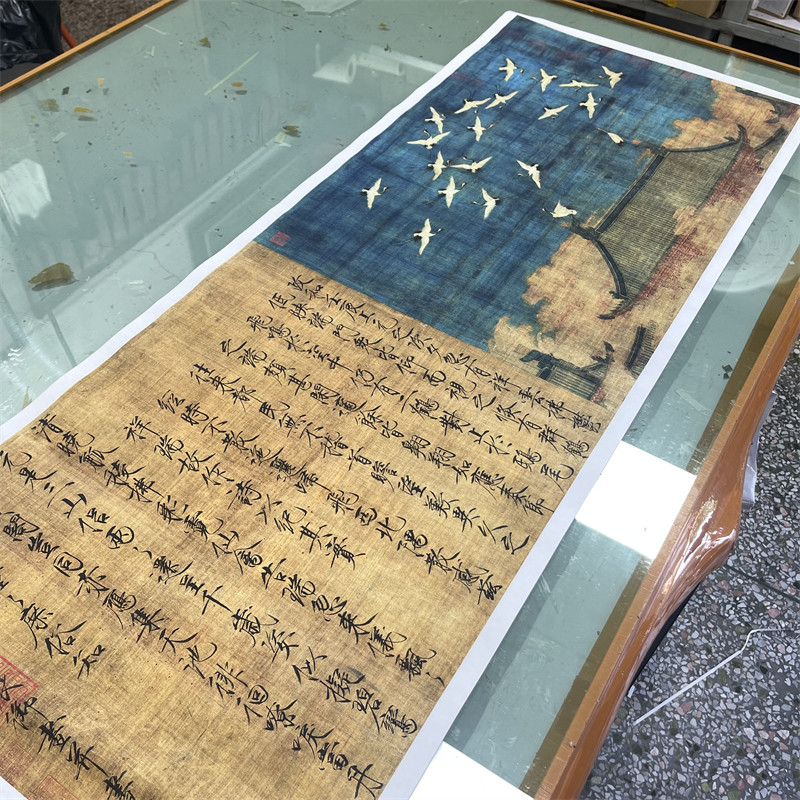 政和壬辰上元之次夕忽有祥雲拂鬱
低映端門眾皆仰而視之倏有群鶴
飛鳴於空中仍有二鶴對止於鴟尾
之端頗甚閒適餘皆翱翔如應奏節
往來都民無不稽首瞻望歎異久之
經時不散迤邐歸飛西北隅散感茲
祥瑞故作詩以紀其實
清曉觚稜拂彩霓仙禽告瑞忽來儀飄〻
元是三山侶兩〻還呈千歲姿似擬碧鸞
閣豈同赤鴈集天池徘徊嘹唳當丹
〻庶俗知
御畫并書